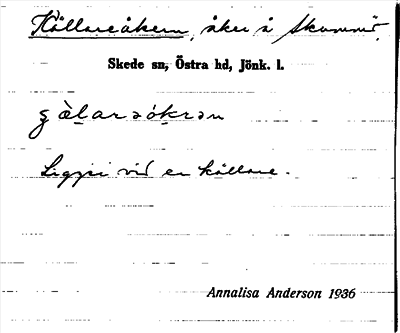 Källareåkern, åker å Skammö.
Skede sn, Östra hd, Jönk. l.
Ligger vid en källare.
Annalisa Anderson 1936